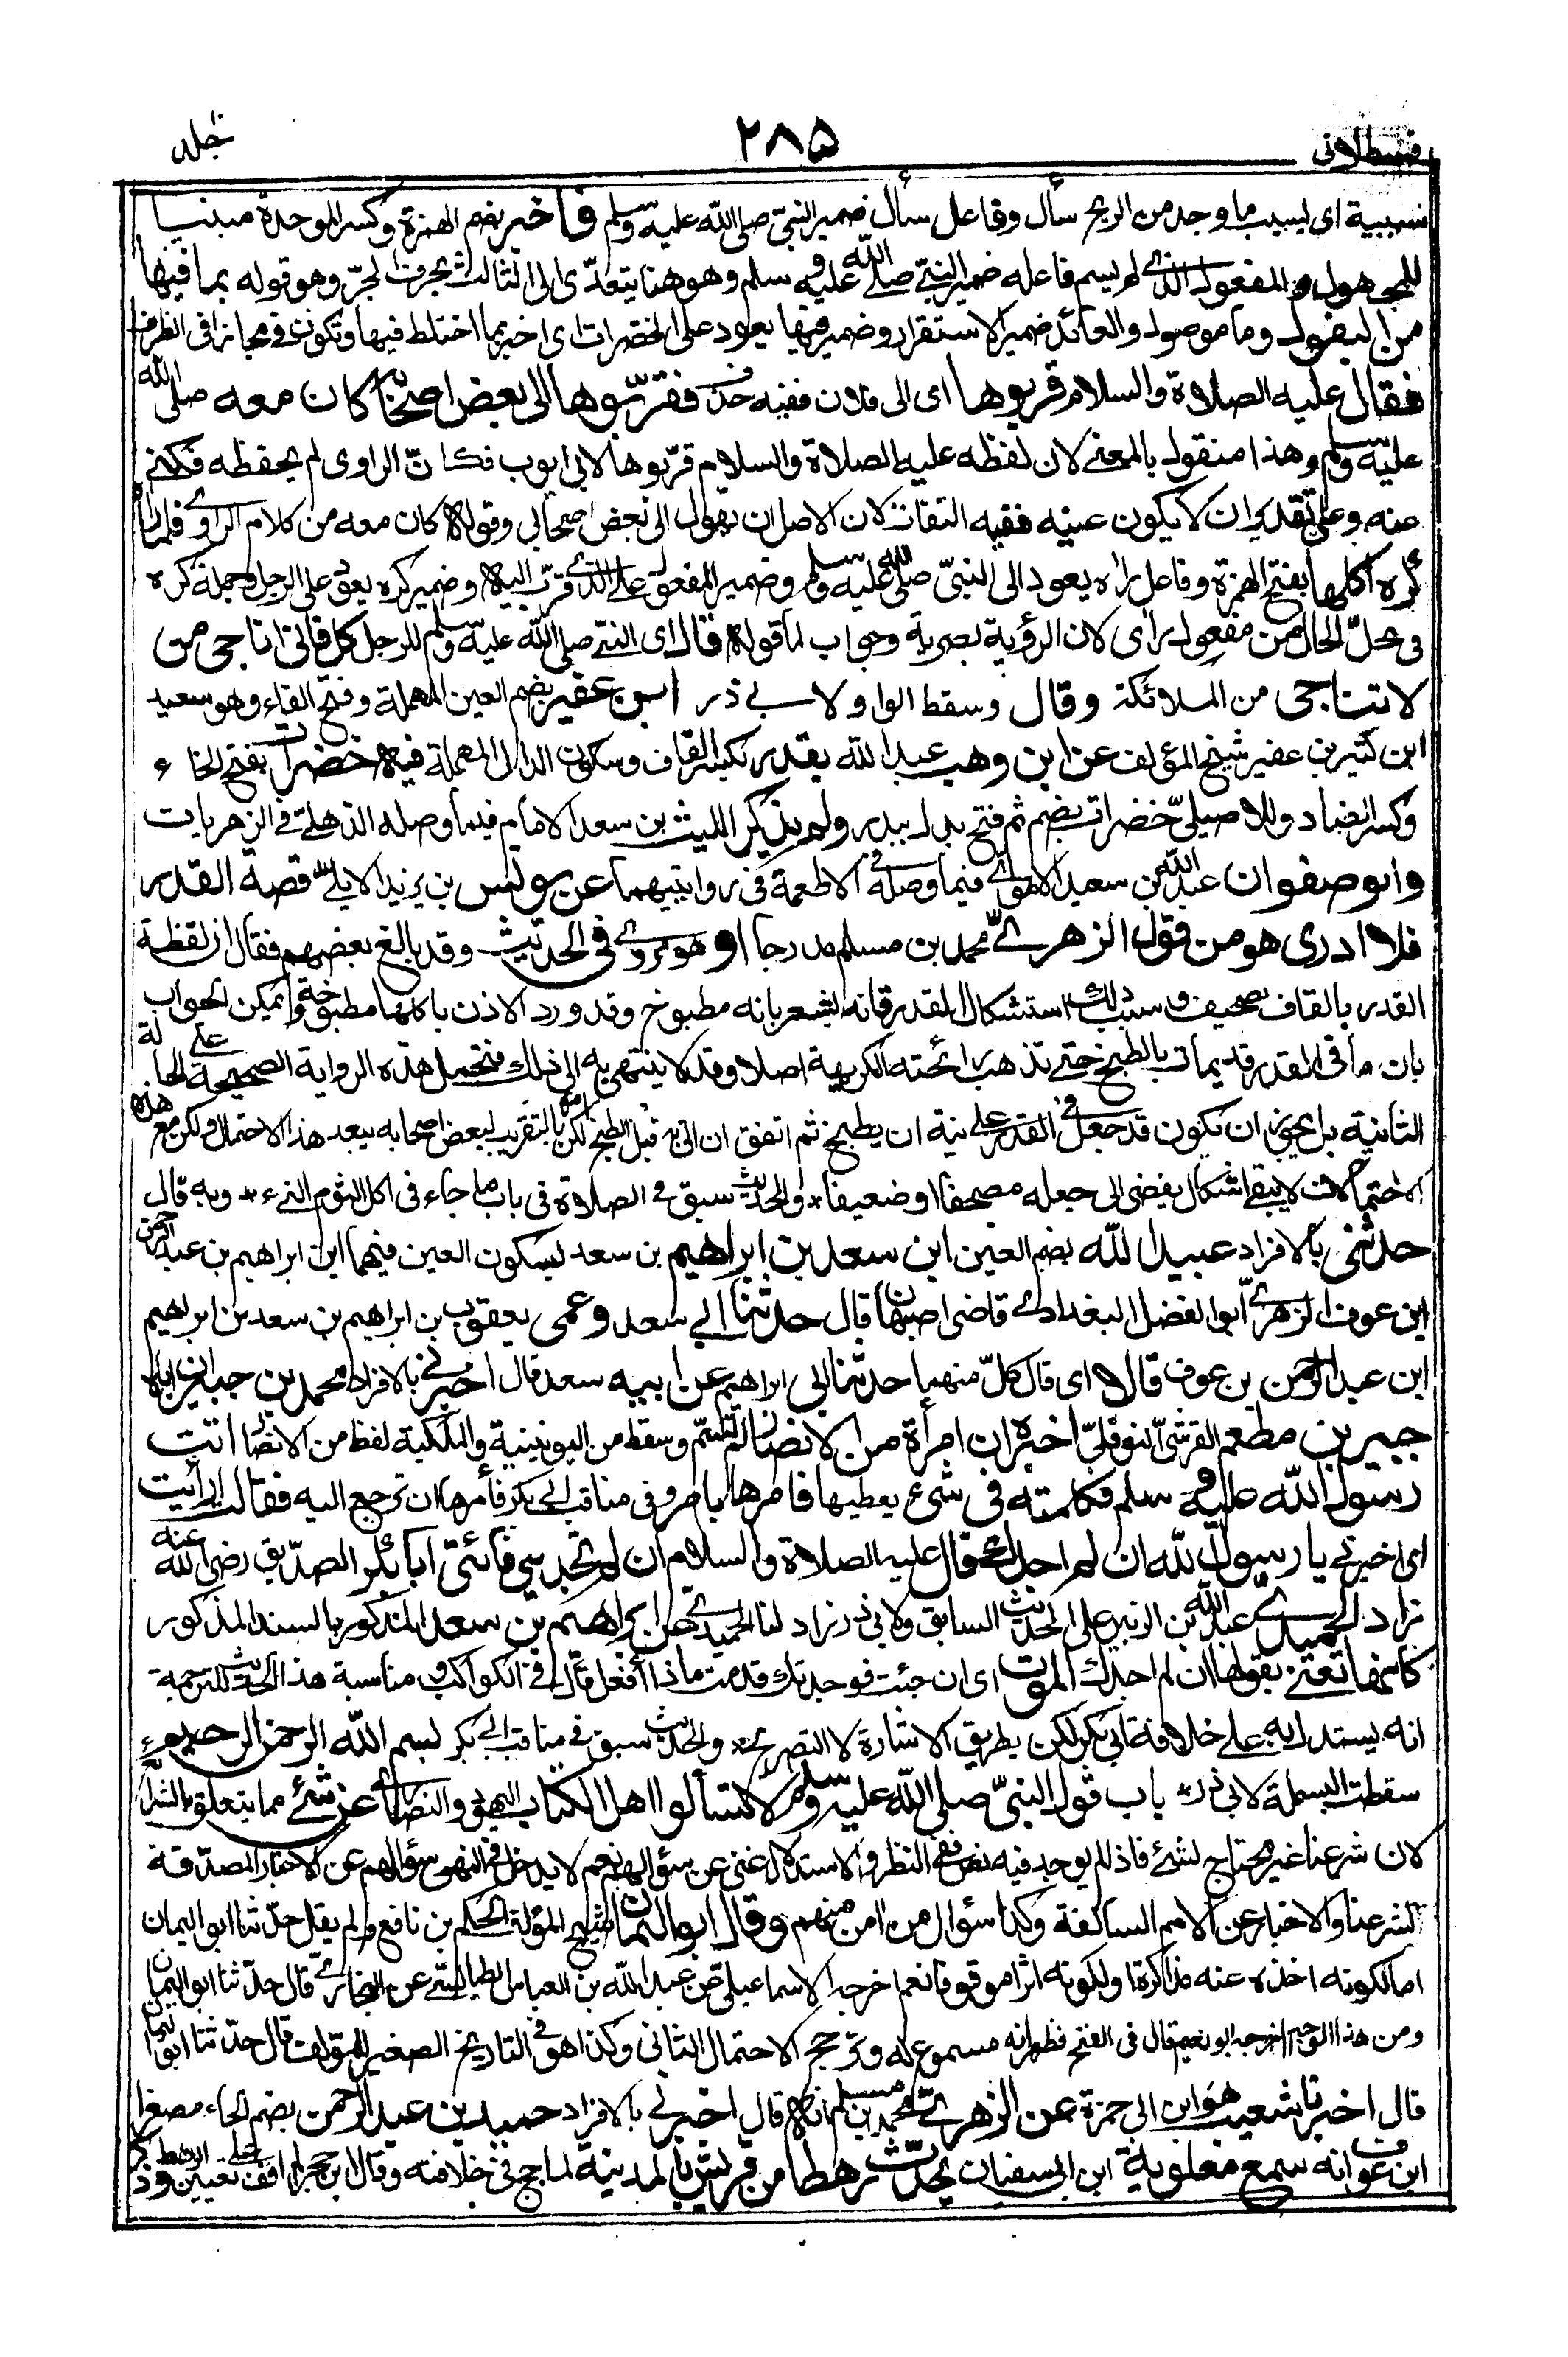 قسطلانی
۲۸۵
جلد
سببية اى بسبب ما وجد من الريح سأل وفاعل سأل ضمير النبيّ صلى الله عليه وسلم فاخبر بضم الهمزة وكسر الموحدة مبنيا
للمجهول والمفعول الذى لم يسم فاعله ضمير النبيّ صلى الله عليه وسلم وهو هنا يتعدّى الى الثالث بحرف الجرّ وهو قوله بما فيها
من البقول وما موصول والعائد ضمير الاستقرار وضمير فيها يعود على الخضرات اى اخبر بما اختلط فيها وتكون فى مجازا فى الظرف
فقال عليه الصلاة والسلام قربوها اى الى فلان ففيه حذف فقرّبوها الى بعض اصحابه كان معه صلى الله
عليه وسلم وهذا منقول بالمعنى لان لفظه عليه الصلاة والسلام قرّبوها لابى ايوب فكانّ الراوى لم يحفظه فكنى
عنه وعلى تقدير ان لا يكون عينه ففيه التفات لان الاصل ان يقول الى بعض اصحابى وقوله كان معه من كلام الراوى فلما رآه
كره اكلها بفتح الهمزة وفاعل رآه يعود الى النبيّ صلى الله عليه وسلم وضمير المفعول على الذى قرّب اليه وضمير كره يعود على الرجل وجملة كره
فى محلّ الحال من مفعول رأى لان الرؤية بصرية وجواب لما قوله قال اى النبيّ صلى الله عليه وسلم للرجل كل فانى اناجى من
لا تناجى من الملائكة وقال وسقط الواو لابى ذر ابن عفير بضم العين المهملة وفتح الفاء وهو سعيد
ابن كثير بن عفير شيخ المؤلف عن ابن وهب عبد الله بقدر بكسر القاف وسكون الدال المهملة فيه خضرات بفتح الخاء
وكسر الضاد وللاصيلىّ خضرات بضم ثم فتح بدل ببدر ولم يذكر الليث بن سعد الامام فيما وصله الذهلى فى الزهريات
وابو صفوان عبد الله بن سعيد الاموىّ فيما وصله فى الاطعمة فى روايتيهما عن يونس بن يزيد الايلىّ قصة القدر
فلا ادرى هو من قول الزهرىّ محمد بن مسلم مدرجا او هو مروىّ فى الحديث وقد بالغ بعضهم فقال ان لفظة
القدر بالقاف تصحيف وسبب ذلك استشكال القدر فانه يشعر بانه مطبوخ وقد ورد الاذن باكلها مطبوخة ويمكن الجواب
بان ما فى القدر قد يمات بالطبخ حتى تذهب رائحته الكريهة اصلا وقد لا ينتهى به الى ذلك فتحمل هذه الرواية الصحيحة على الحالة
الثانية بل يجوز ان تكون قد جعل فى القدر على نية ان يطبخ ثم اتفق ان اتى به قبل الطبخ لكن امره بالتقريب لبعض اصحابه يبعد هذا الاحتمال ولكن مع هذه
الاحتمالات لا يبقى اشكال يفضى الى جعله مصحفا او ضعيفا * والحديث سبق فى الصلاة فى باب ما جاء فى اكل الثوم النىء * وبه قال
حدثنى بالافراد عبيد الله بضم العين ابن سعد بن ابراهيم بن سعد بسكون العين فيهما ابن ابراهيم بن عبد الرحمن
ابن عوف الزهرىّ ابو الفضل البغدادى قاضى اصبهان قال حدثنا ابى سعد وعمى يعقوب بن ابراهيم بن سعد بن ابراهيم
ابن عبد الرحمن بن عوف قالا اى قال كلّ منهما حدثنا ابى ابراهيم عن ابيه سعد قال اخبرنى بالافراد محمد بن جبير ان اباه
جبير بن مطعم القرشىّ النوفلىّ اخبره ان امرأة من الانصار لم تسمّ وسقط من اليونينية والملكية لفظ من الانصار اتت
رسول الله صلى الله عليه وسلم فكلمته فى شىء يعطيها فامرها بامر وفى مناقب ابى بكر فأمرها ان ترجع اليه فقالت أرأيت
اى اخبرنى يا رسول الله ان لم اجدك قال عليه الصلاة والسلام ان لم تجدينى فائتى ابا بكر الصدّيق رضى الله عنه
زاد الحميدى عبد الله بن الزبير على الحديث السابق ولابى ذر زاد لنا الحميدى عن ابراهيم بن سعد المذكور بالسند المذكور
كانها تعنى بقولها ان لم اجدك الموت اى ان جئت فوجدتك قد مت ماذا أفعل قال فى الكواكب مناسبة هذا الحديث للترجمة
انه يستدل به على خلافة ابى بكر لكن بطريق الاشارة لا التصريح * والحديث سبق فى مناقب ابى بكر بسم الله الرحمن الرحيم
سقطت البسملة لابى ذر * باب قول النبيّ صلى الله عليه وسلم لا تسألوا اهل الكتاب اليهود والنصارى عن شئ مما يتعلق بالشرائع
لان شرعنا غير محتاج لشئ فاذا لم يوجد فيه نص ففى النظر والاستدلال غنى عن سؤالهم نعم لا يدخل فى النهى سؤالهم عن الاخبار المصدّقة
لشرعنا والاخبار عن الامم السالفة وكذا سؤال من امن منهم وقال ابو اليمان شيخ المؤلف الحكم بن نافع ولم يقل حدّثنا ابو اليمان
اما لكونه اخذه عنه مذاكرة او لكونه اثرا موقوفا نعم اخرجه الاسماعيلىّ عن عبد الله بن العباس الطيالسىّ عن البخارىّ قال حدّثنا ابو اليمان
ومن هذا الوجه اخرجه ابو نعيم قال فى الفتح فظهر انه مسموع له وترجح الاحتمال الثانى وكذا هو فى التاريخ الصغير للمؤلف قال حدّثنا ابو اليمان
قال اخبرنا شعيب هو ابن ابى حمزة عن الزهرىّ محمد بن مسلم انه قال اخبرنى بالافراد حميد بن عبد الرحمن بضم الحاء مصغرا
ابن عوف انه سمع معاوية ابن ابى سفيان يحدّث رهطا من قريش بالمدينة لما حج فى خلافته وقال ابن حجر لم اقف على تعيين الرهط وذكر